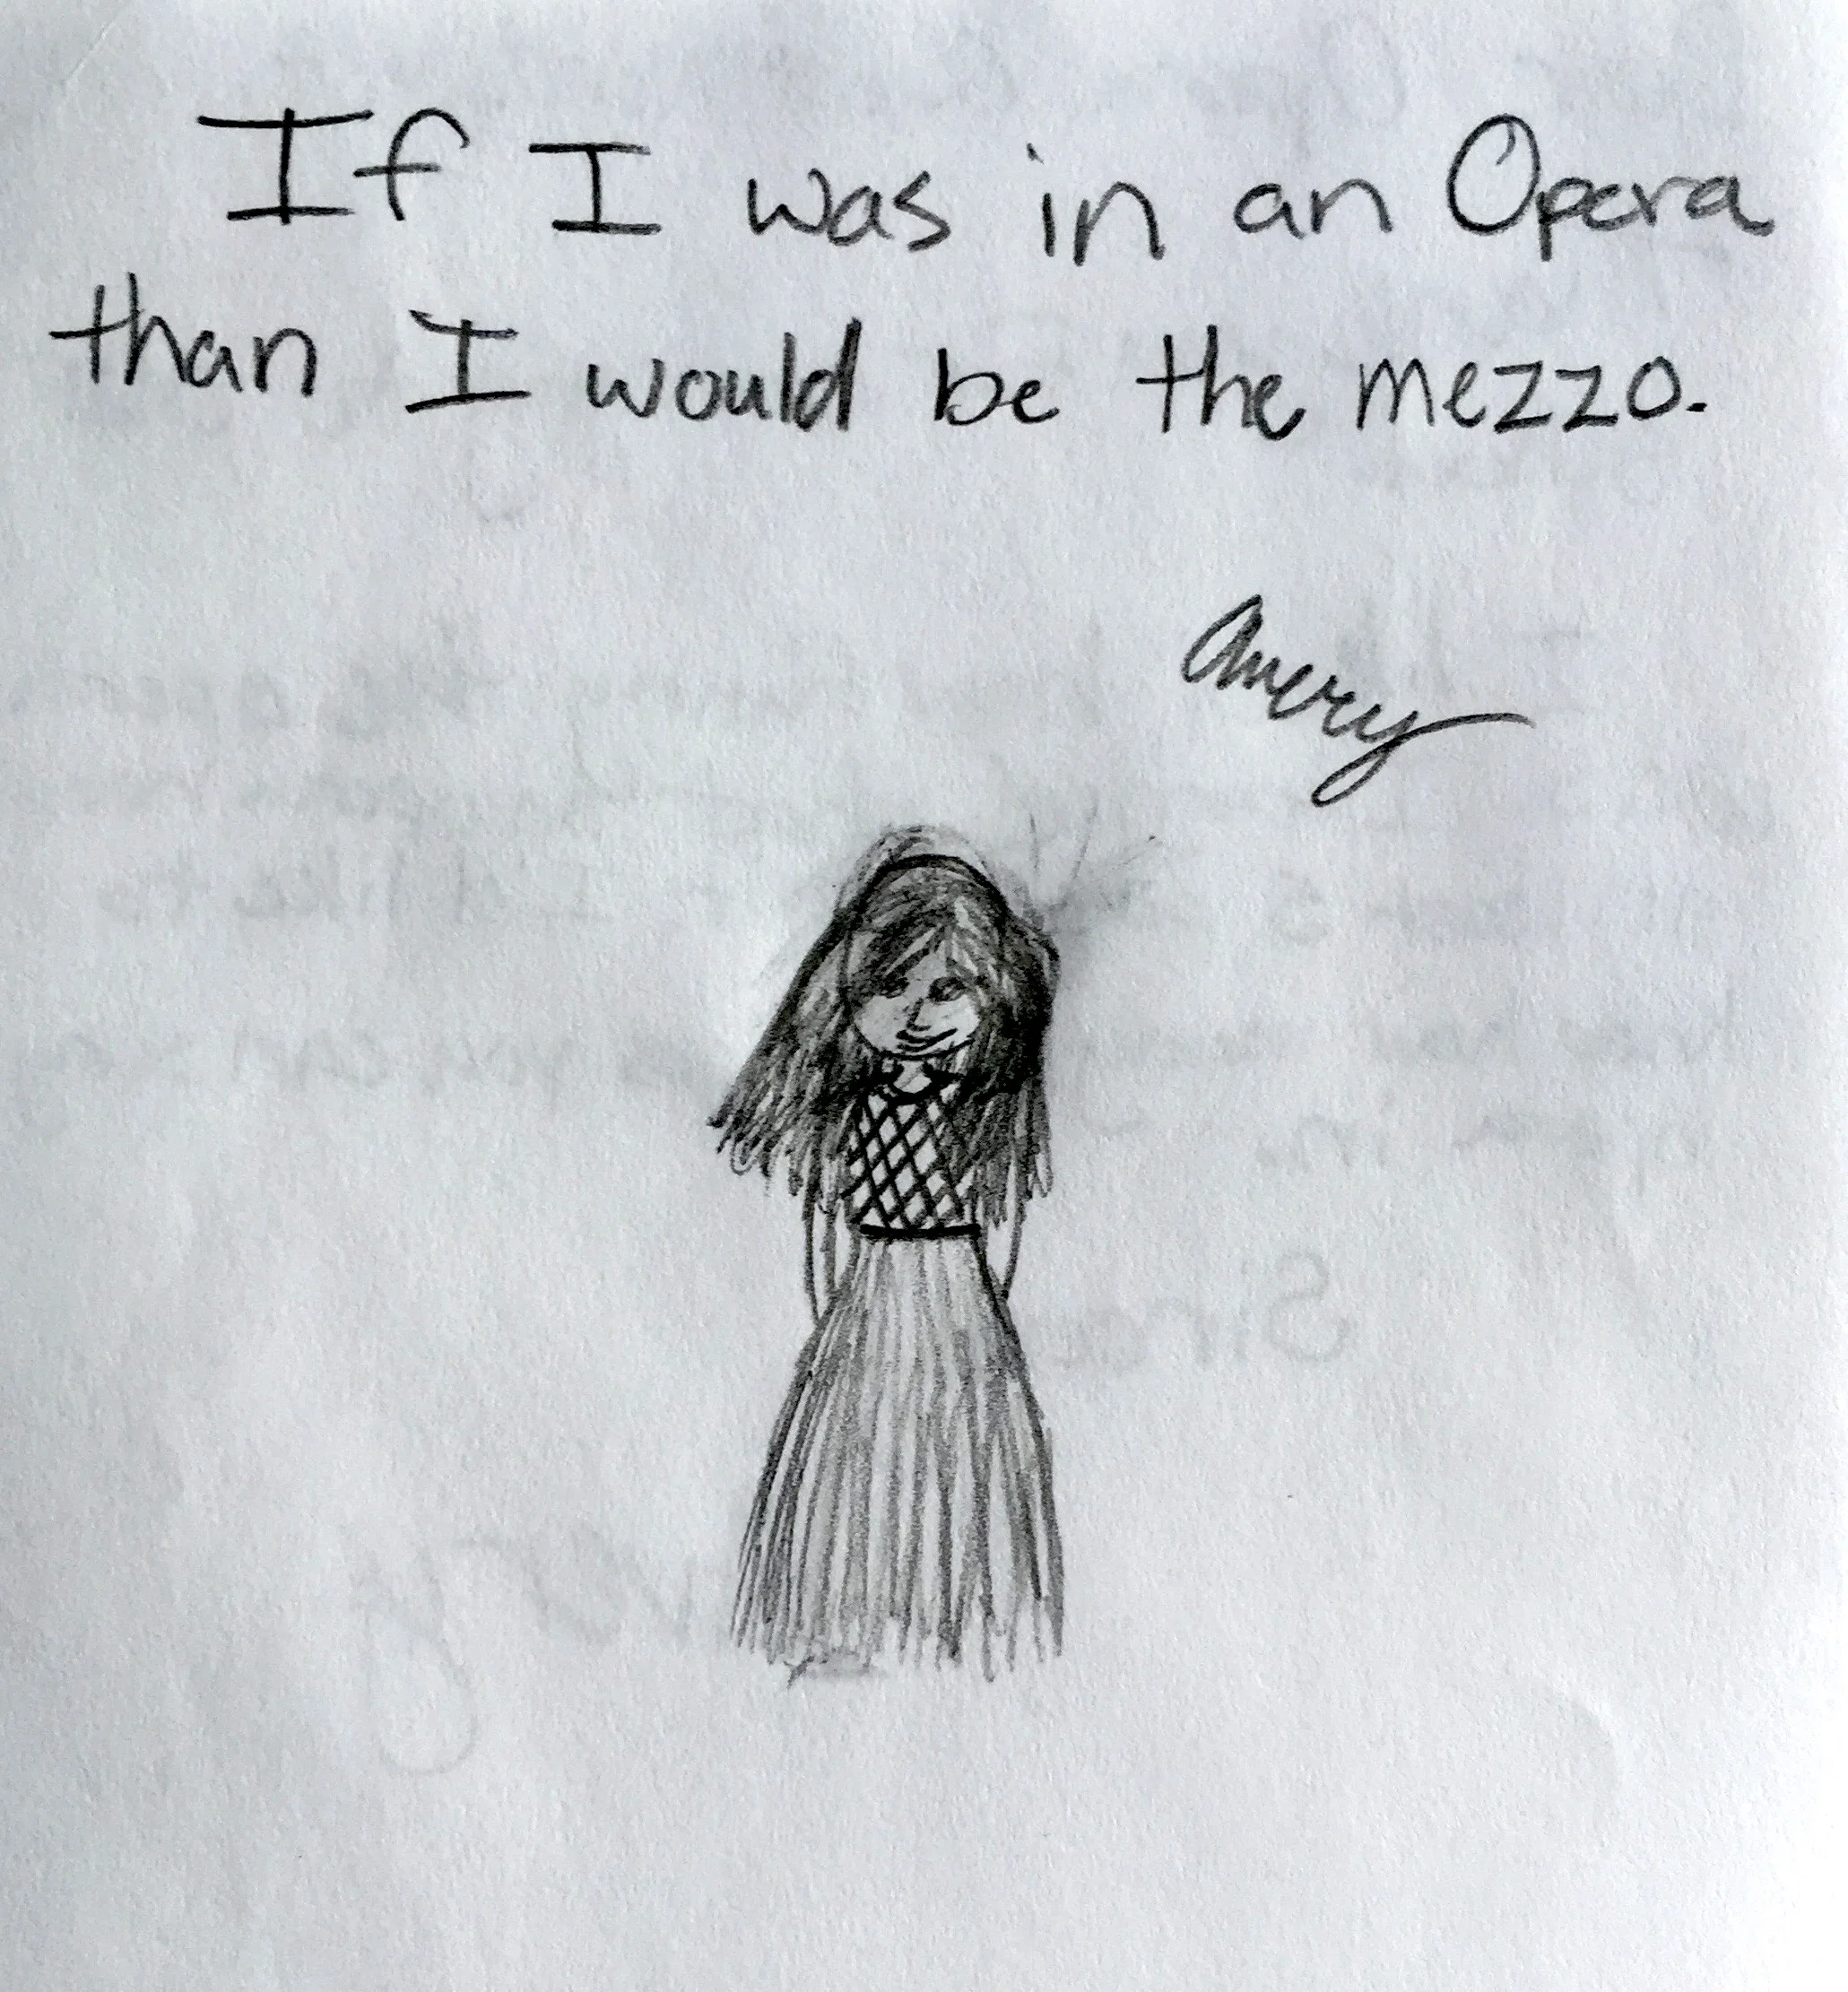 If I was in an Opera
than I would be the mezzo.
Avery